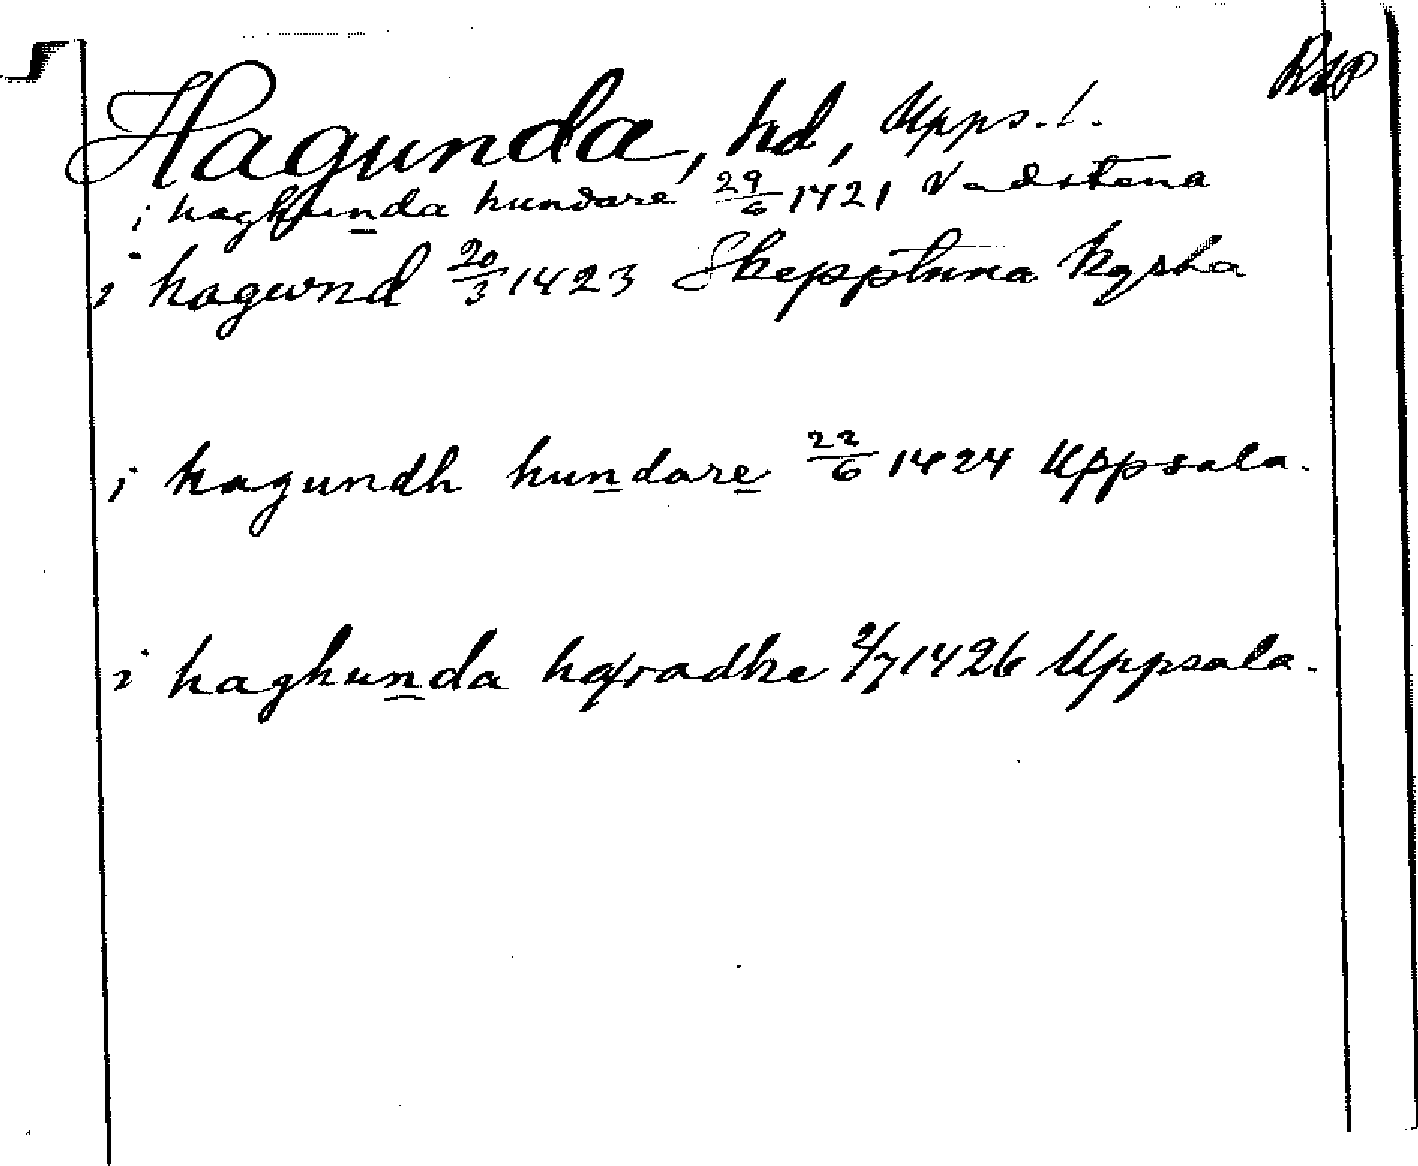 RAP
Hagunda, hd, Upps. l.
i haghunda hundare 29/6 1421 Vadstena
i hagwnd 20/3 1423 Skepptuna kyrka
i hagundh hundare 22/6 1424 Uppsala.
i haghunda hæradhe 2/7 1426 Uppsala.